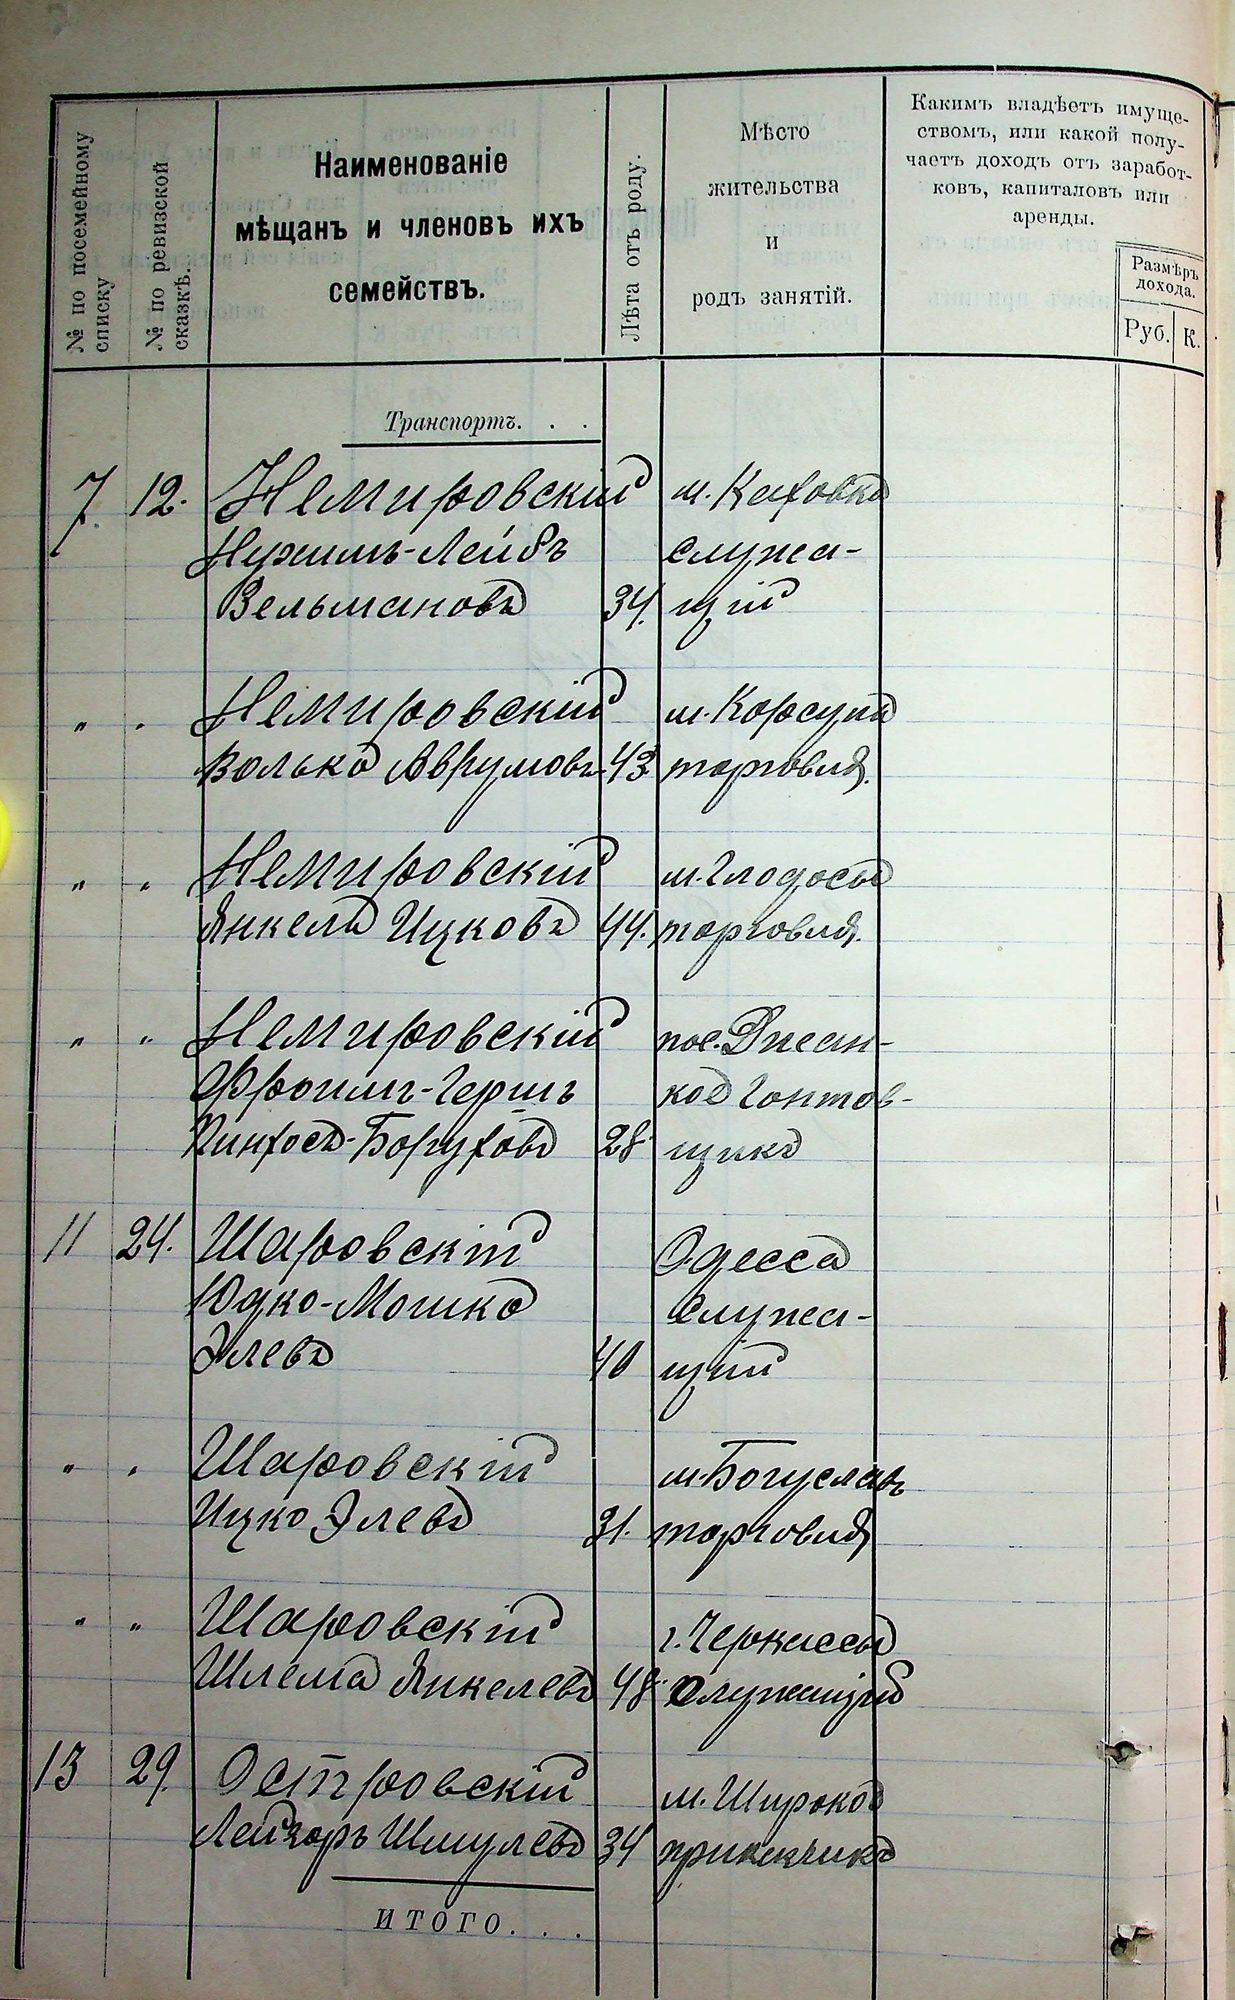 № по посемейному
списку
№ по ревизской
сказкѣ.
Наименованіе
мѣщанъ и членовъ ихъ
семействъ.
Лѣта отъ роду.
Мѣсто
жительства
и
родъ занятій.
Какимъ владѣетъ имуще-
ствомъ, или какой полу-
чаетъ доходъ отъ заработ-
ковъ, капиталовъ или
аренды.
Размѣръ
дохода.
Руб. К.
Транспортъ. . .
7. 12. Немировскій м. Каховка
Нухимъ-Лейбъ служа-
Вельмановъ 34. щій
" " Немировскій м. Корсунь
Волько Аврумовъ 43 торговля.
" " Немировскій м. Глодосы
Янкель Ицковъ 44. торговля.
" " Немировскій пос. Джан-
Фроимъ-Гершъ кой Гонтов-
Пинхосъ-Боруховъ 28 щикъ
11 24. Шаровскій Одесса
Юдко-Мошко служа-
Элевъ 40 щій
" " Шаровскій м. Богуславъ
Ицко Элевъ 31. торговля
" " Шаровскій г. Черкассы
Шлема Янкелевъ 48 служащій
13 29. Островскій м. Широкое
Лейзоръ Шмулевъ 34 прикащикъ
ИТОГО. . .